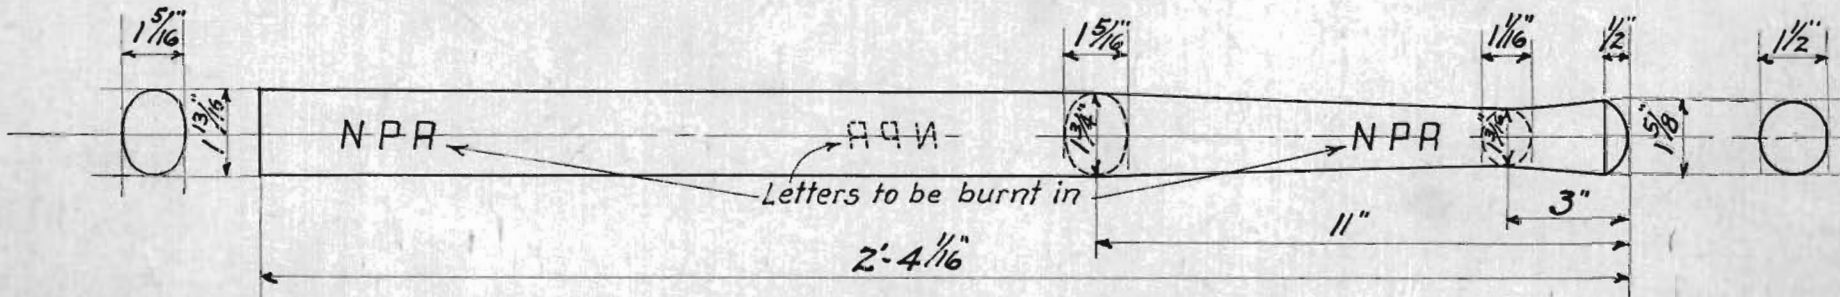 1 5/16"
1 5/16"
1 1/16"
1/2"
1 1/2"
1 13/16"
NPR
NPR
1 3/4"
NPR
1 3/16"
1 5/8"
Letters to be burnt in
3"
11"
2'-4 1/16"